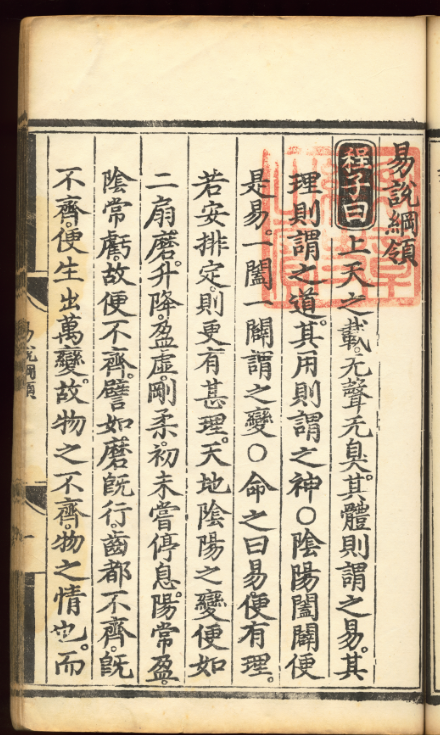 易說綱領
程子曰上天之載。无聲无臭。其體則謂之易。其
理則謂之道。其用則謂之神○陰陽闔闢便
是易。一闔一闢謂之變○命之曰易便有理。
若安排定。則更有甚理。天地陰陽之變便如
二扇磨。升降。盈虛。剛柔。初未嘗停息。陽常盈。
陰常虧。故便不齊。譬如磨旣行。齒都不齊。旣
不齊。便生出萬變。故物之不齊。物之情也。而
易說綱領
一